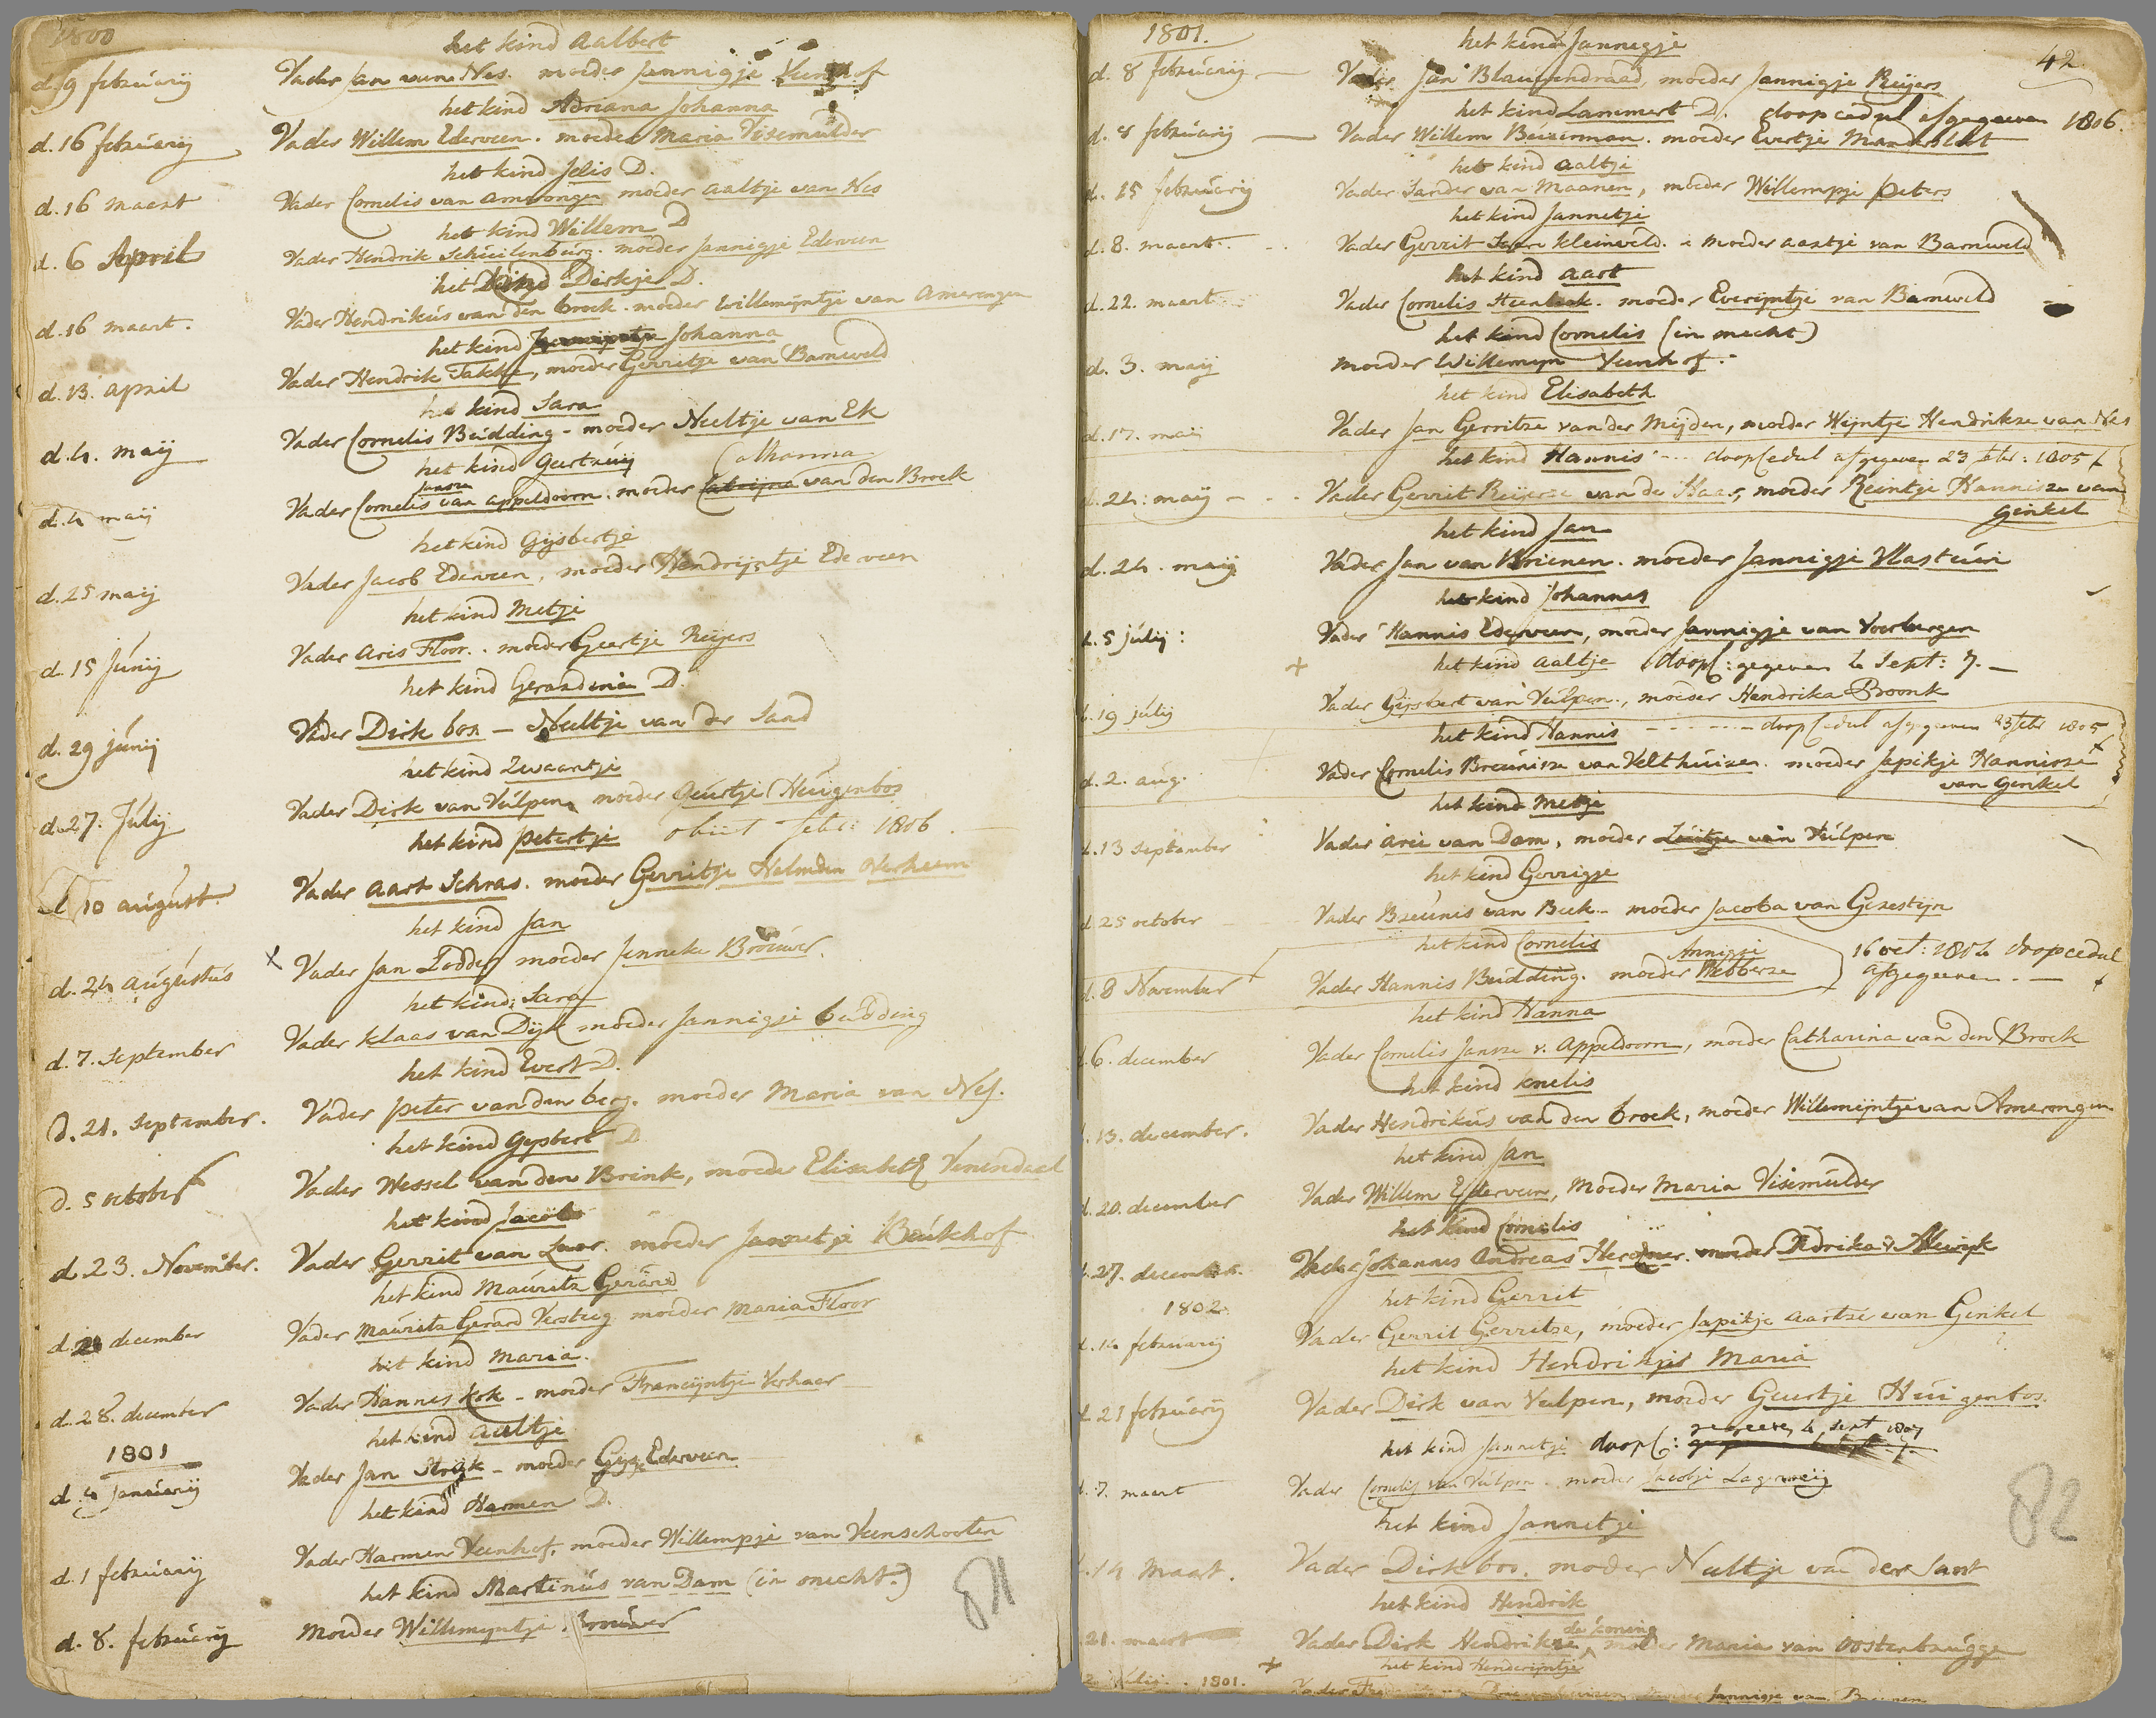 1800
het kind Aalbert
d. 9 februarij Vader Jan van Nes. moeder Jannigje Veenhof
het kind Adriana Johanna
d. 16 februarij Vader Willem Ederveen. moeder Maria Visemulder
het kind Jelis D.
d. 16 maart Vader Cornelis van Amerongen moeder Aaltje van Nes
het kind Willem D
d. 6 April Vader Hendrik Schuilenburg. moeder Jannigje Ederveen
het kind Dirkje D.
d. 16 maart. Vader Hendrikus van den broek. moeder Willemijntje van Amerongen
het kind Johanna
d. 13. april Vader Hendrik Takke, moeder Gerritje van Barneveld
het kind Sara
d. 4. maij Vader Cornelis Budding - moeder Neeltje van Ek
het kind Geertruij Catharina
Jansze
d. 4 maij Vader Cornelis van appeldoorn. moeder Catrijna van den Broek
het kind Gijsbertje
d. 25 maij Vader Jacob Ederveen, moeder Hendrijntje Ederveen
het kind Metje
d. 15 Junij Vader Aris Floor. moeder Geertje Reijers
het kind Gerardina D.
d. 29 junij Vader Dirk bos - Neeltje van der Sand
het kind Zwaantje
d. 27. Julij Vader Dirk van Vulpen, moeder Geurtje Huigenbos
het kind petertje obiit febr: 1806.
d. 10 august. Vader Aart Schras. moeder Gerritje Helmden Verheem
het kind Jan
d. 24 augustus X Vader Jan Todden moeder Jenneke Brouwer.
het kind Sara
d. 7. September Vader Klaas van Dijk moeder Jannigje budding
het kind Evert D.
d. 21. September. Vader peter van den berg. moeder Maria van Nes.
het kind Gysbert D
d. 5 october Vader Wessel van den Brink, moeder Elisabeth Venendaal
het kind Jacob
d. 23. November. Vader Gerrit van Laar. moeder Jannetje Beukhof
het kind Maurits Gerard
d. 21 december Vader Maurits Gerard Versteeg moeder Maria Floor
het kind Maria.
d. 28. december Vader Hannes Kok - moeder Francijntje Verhaer
1801
het kind aaltje
d. 4 januarij Vader Jan Strijk - moeder Gijsje Ederveen
het kind Harmen D.
d. 1 februarij Vader Harmen Veenhof, moeder Willempje van Veenschooten
het kind Martinus van Dam (in onecht.)
d. 8. februarij Moeder Willemijntje Brouwer
81
1801.
42
het kind Jannigje
d. 8 februarij Vader Jan Blauwendraad, moeder Jannigje Reijers
het kind Lammert D. doop cedul afgegeven 1806.
d. 8 februarij Vader Willem Beizerman. moeder Evertje Manderblat
het kind aaltje
d. 15 februarij Vader Sander van Maanen, moeder Willempje peters
het kind Jannetje
d. 8. maart. Vader Gerrit Kleinveld. moeder aartje van Barneveld
het kind aart
d. 22. maart Vader Cornelis Steenbeek. moeder Everijntje van Barneveld
het kind Cornelis (in onecht)
d. 3. maij moeder Willemyn Veenhof.
het kind Elisabeth
d. 17. maij Vader Jan Gerritze van der Meijden, moeder Weijntje Hendrikze van Nes
het kind Hannis doop Cedul afgegeven 23 febr: 1805
d. 24: maij Vader Gerrit Reijerse van de Haar, moeder Reintje Hannisze van
Genkel
het kind Jan
d. 24. maij Vader Jan van Brienen. moeder Jannigje Vlastuin
het kind Johannes
d. 5 julij: Vader Hannis Ederveen, moeder Jannigje van Voorburgen
het kind aaltje doopC: gegeven 4 Sept: 7.
d. 19 julij Vader Gijsbert van Vulpen., moeder Hendrika Bronk
het kind Hannis doop Cedul afgegeven 23 febr 1805
d. 2. aug. Vader Cornelis Breunisze van Velthuizen. moeder Japikje Hannisze
van Genkel
het kind Metje
d. 13 September Vader Arie van Dam, moeder van Vulpen
het kind Gerrigje
d. 25 october Vader Breunis van Beek - moeder Jacoba van Gerestijn
het kind Cornelis Annigje 16 oct: 1804 doopcedul
d. 8 November Vader Hannis Budding. moeder Webberze afgegeven
het kind Hanna
d. 6. december Vader Cornelis Jansze v. Appeldoorn, moeder Catharina van den Broek
het kind knelis
d. 13. december. Vader Hendrikus van den broek, moeder Willemijntje van Amerongen
het kind Jan
d. 20. december Vader Willem Ederveen, Moeder Maria Visemulder
het kind Cornelis
d. 27. december. Vader Johannes Andreas moeder
1802.
het kind Gerrit
d. 14 februarij Vader Gerrit Gerritze, moeder Japikje aartze van Genkel
het kind Hendrikjes Maria
d. 21 februarij Vader Dirk van Vulpen, moeder Geurtje Huigenbos.
het kind Jannetje doopC: gegeeven 4 Sept 1807
d. 7. maart Vader Cornelis van Vulpen. moeder Jacobje Lagerweij
het kind Jannetje
d. 14 Maart. Vader Dirk bos. moeder Neeltje van der Sant
het kind Hendrik
de koning
21. maart Vader Dirk Hendrikze, moeder Maria van Oostenbrugge
het kind Henderijntje
Julij. 1801. Vader moeder Jannigje van
82